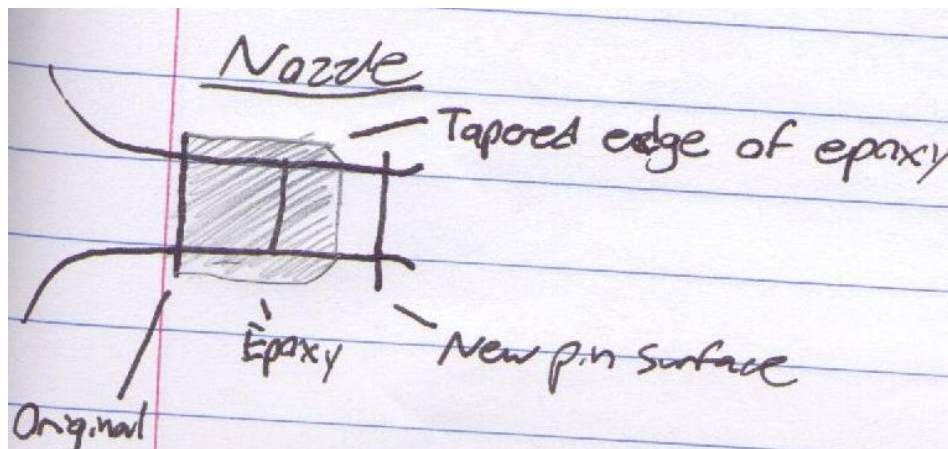 Nozzle
Tapered edge of epoxy
Epoxy
New pin surface
Original